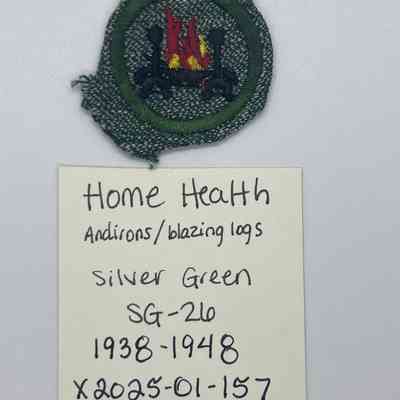 Home Health
Andirons/blazing logs
Silver Green
SG-26
1938-1948
X2025-01-157